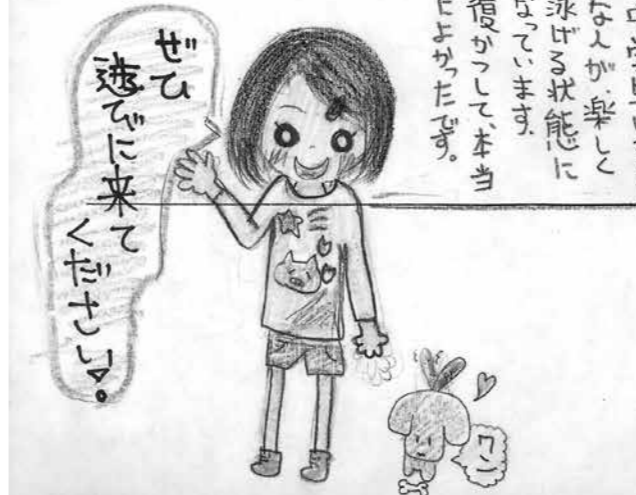 な人が、楽しく
泳げる状態に
なっています。
復かつして、本当
によかったです。
ぜひ
遊びに来て
ください!
ワン